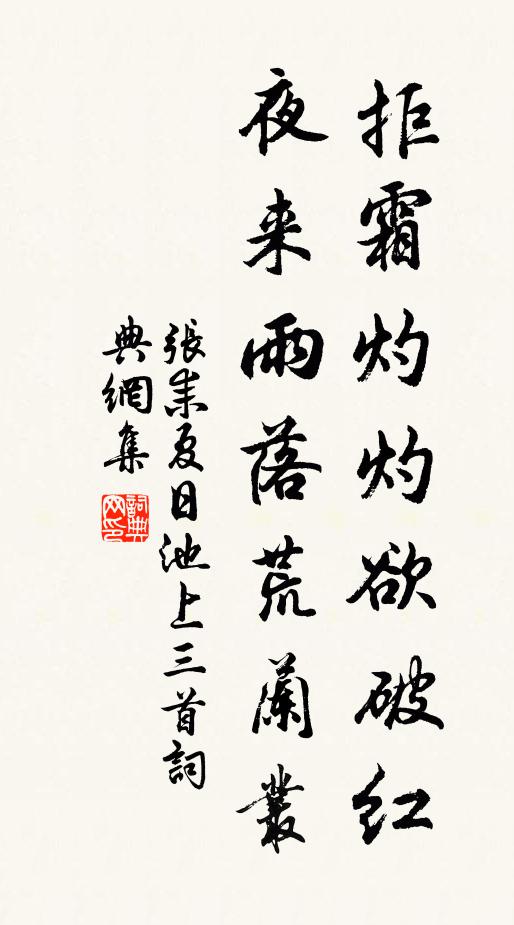 拒霜灼灼欲破红
夜来雨落荒蘭叢
張耒夏日池上三首詞
典網集
詞典
网印